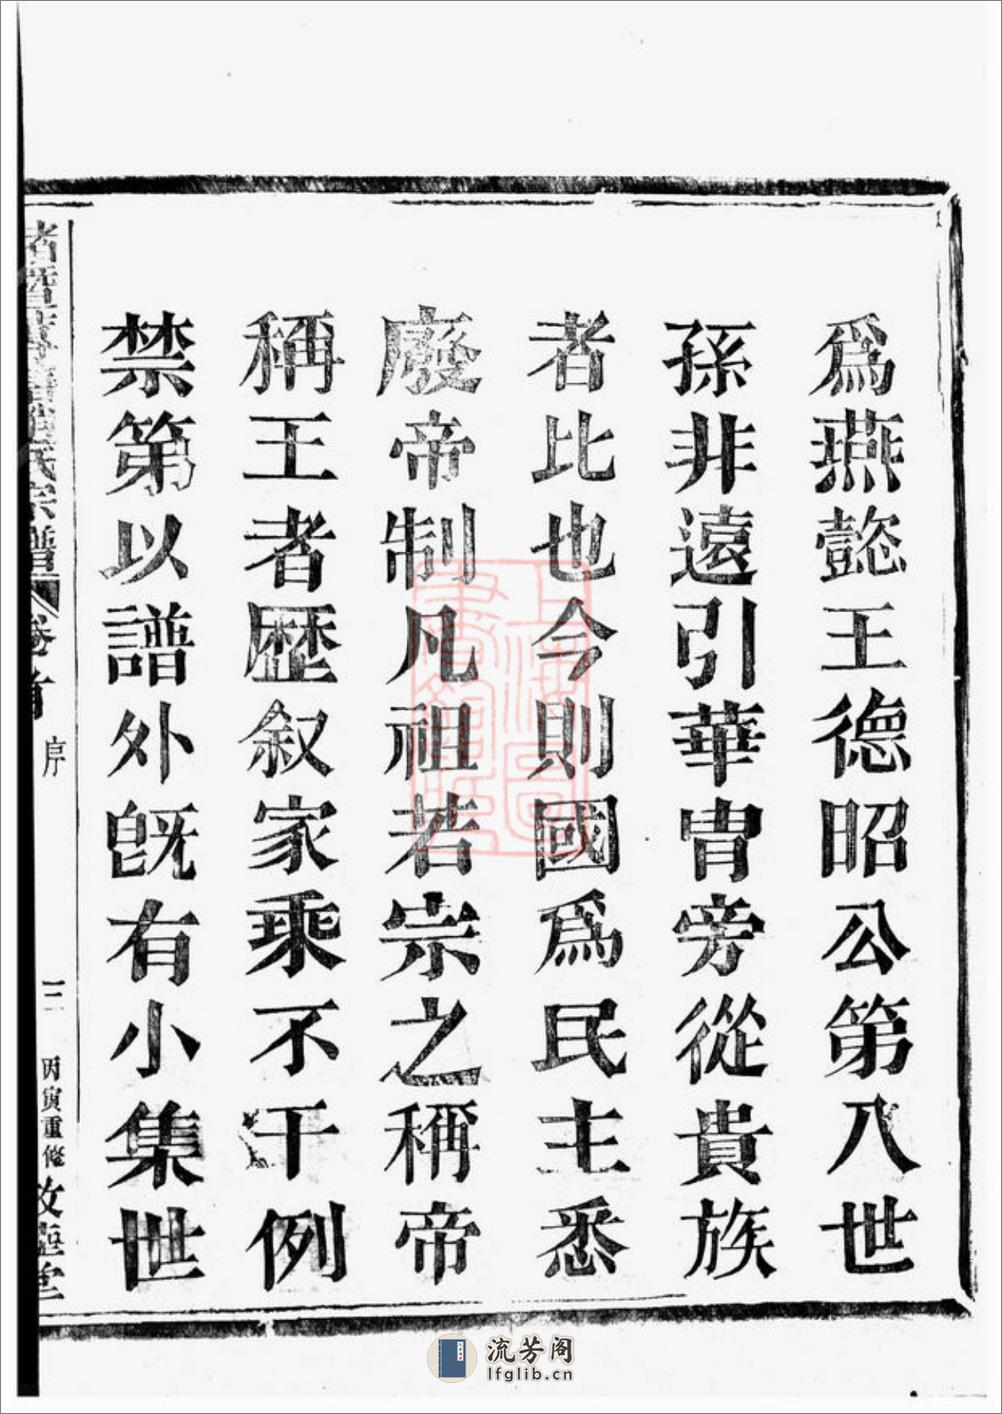 爲燕懿王德昭公第八世
孫非遠引華胄旁從貴族
者比也今則國爲民主悉
廢帝制凡祖若宗之稱帝
稱王者歷叙家乘不干例
禁第以譜外旣有小集世
氏宗譜 卷首 序 三 丙寅重修
上海圖書館藏
流芳阁
lfglib.cn